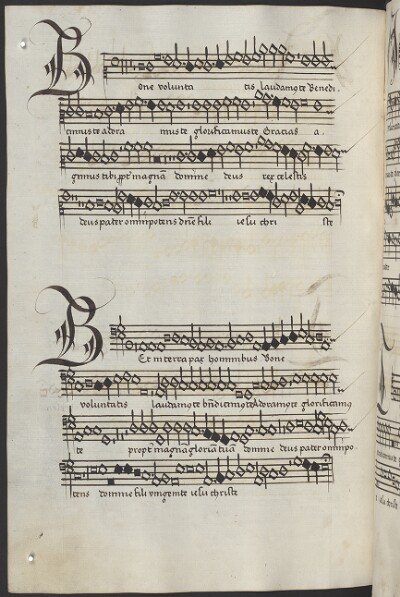 B one volunta tis laudamꝰte Benedi.
cimuste adora muste glorificamuste Gracias a.
gimus tibi ꝓpt̃ magnã domine deus rex celestis
deus pater omnipotens dñe fili iesu chri ste
B Et in terra pax hominibus Bone
voluntatis laudamꝰte bñdicimꝰte Adoramꝰte glorificamꝰ
te propt̃ magnã gloriã tuã domine deus pater omnipo.
tens domine fili vnigenite iesu christe